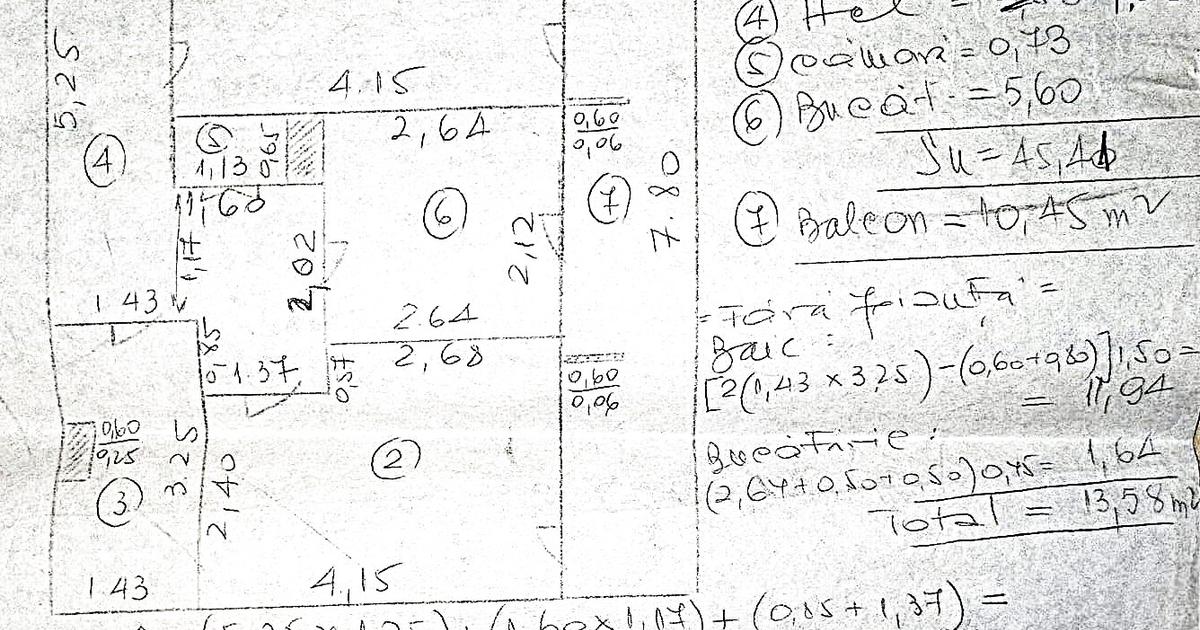 5,25
4.15
5
1,13 0,65
2,64
0,60
0,06
4
1,68
6
7
7.80
1,17
2,02
2,12
1.43
2.64
0,85
1.37
0,57
2,68
0,60
0,06
0,60
0,25
3.25
2
3
2,40
1.43
4,15
4 Hol =
5 cămară = 0,73
6 Bucăt. = 5,60
Su = 45,41
7 Balcon = 10,45 m²
= Fără faianță =
Baie :
[2(1,43 x 3,25) - (0,60+0,80)] 1,50 =
= 11,94
Bucătărie :
(2,64+0,50+0,50) 0,45 = 1,64
Total = 13,58 m²
(1,60x1,17) + (0,85 + 1,37) =